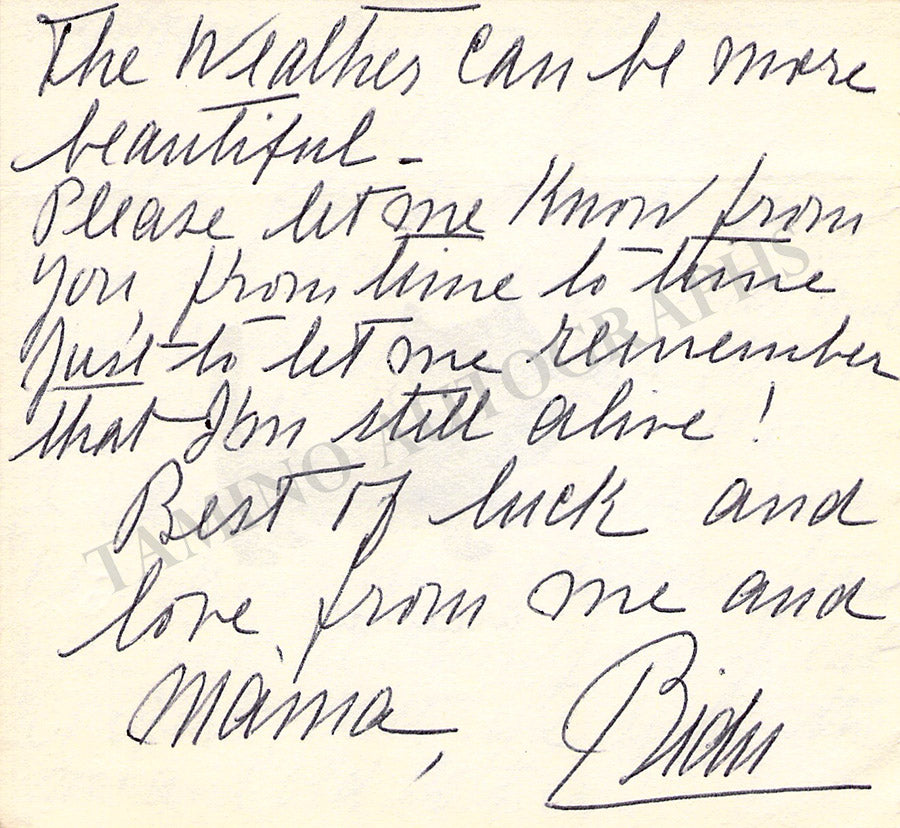 The Weather can be more
beautiful -
Please let me Know from
you, from time to time
Just to let me remember
that I'm still alive!
Best of luck and
love from me and
Máma, Bidu
TAMINO AUTOGRAPHS